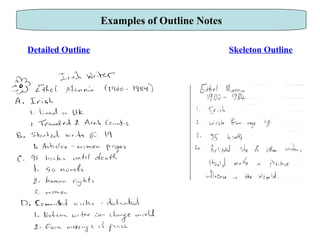 Examples of Outline Notes
Detailed Outline
Skeleton Outline
Irish Writer
Ethel Mannin (1900 - 1984)
A. Irish
1. lived in UK
1. Travelled 2 Arab Counts
B. Started write @ 19
1. Articles - women pages
C. 95 books until death
1. 50 novels
2. human rights
3. women
D. Committed writer - dedicated
1. Believe writer can change world
2. Given message of peace
Ethel Mannin
1900 - 1984
1. Irish
2. wrote from age 19
3. 95 books
4. Believed she & other writers
should make a positive
influence in the World.